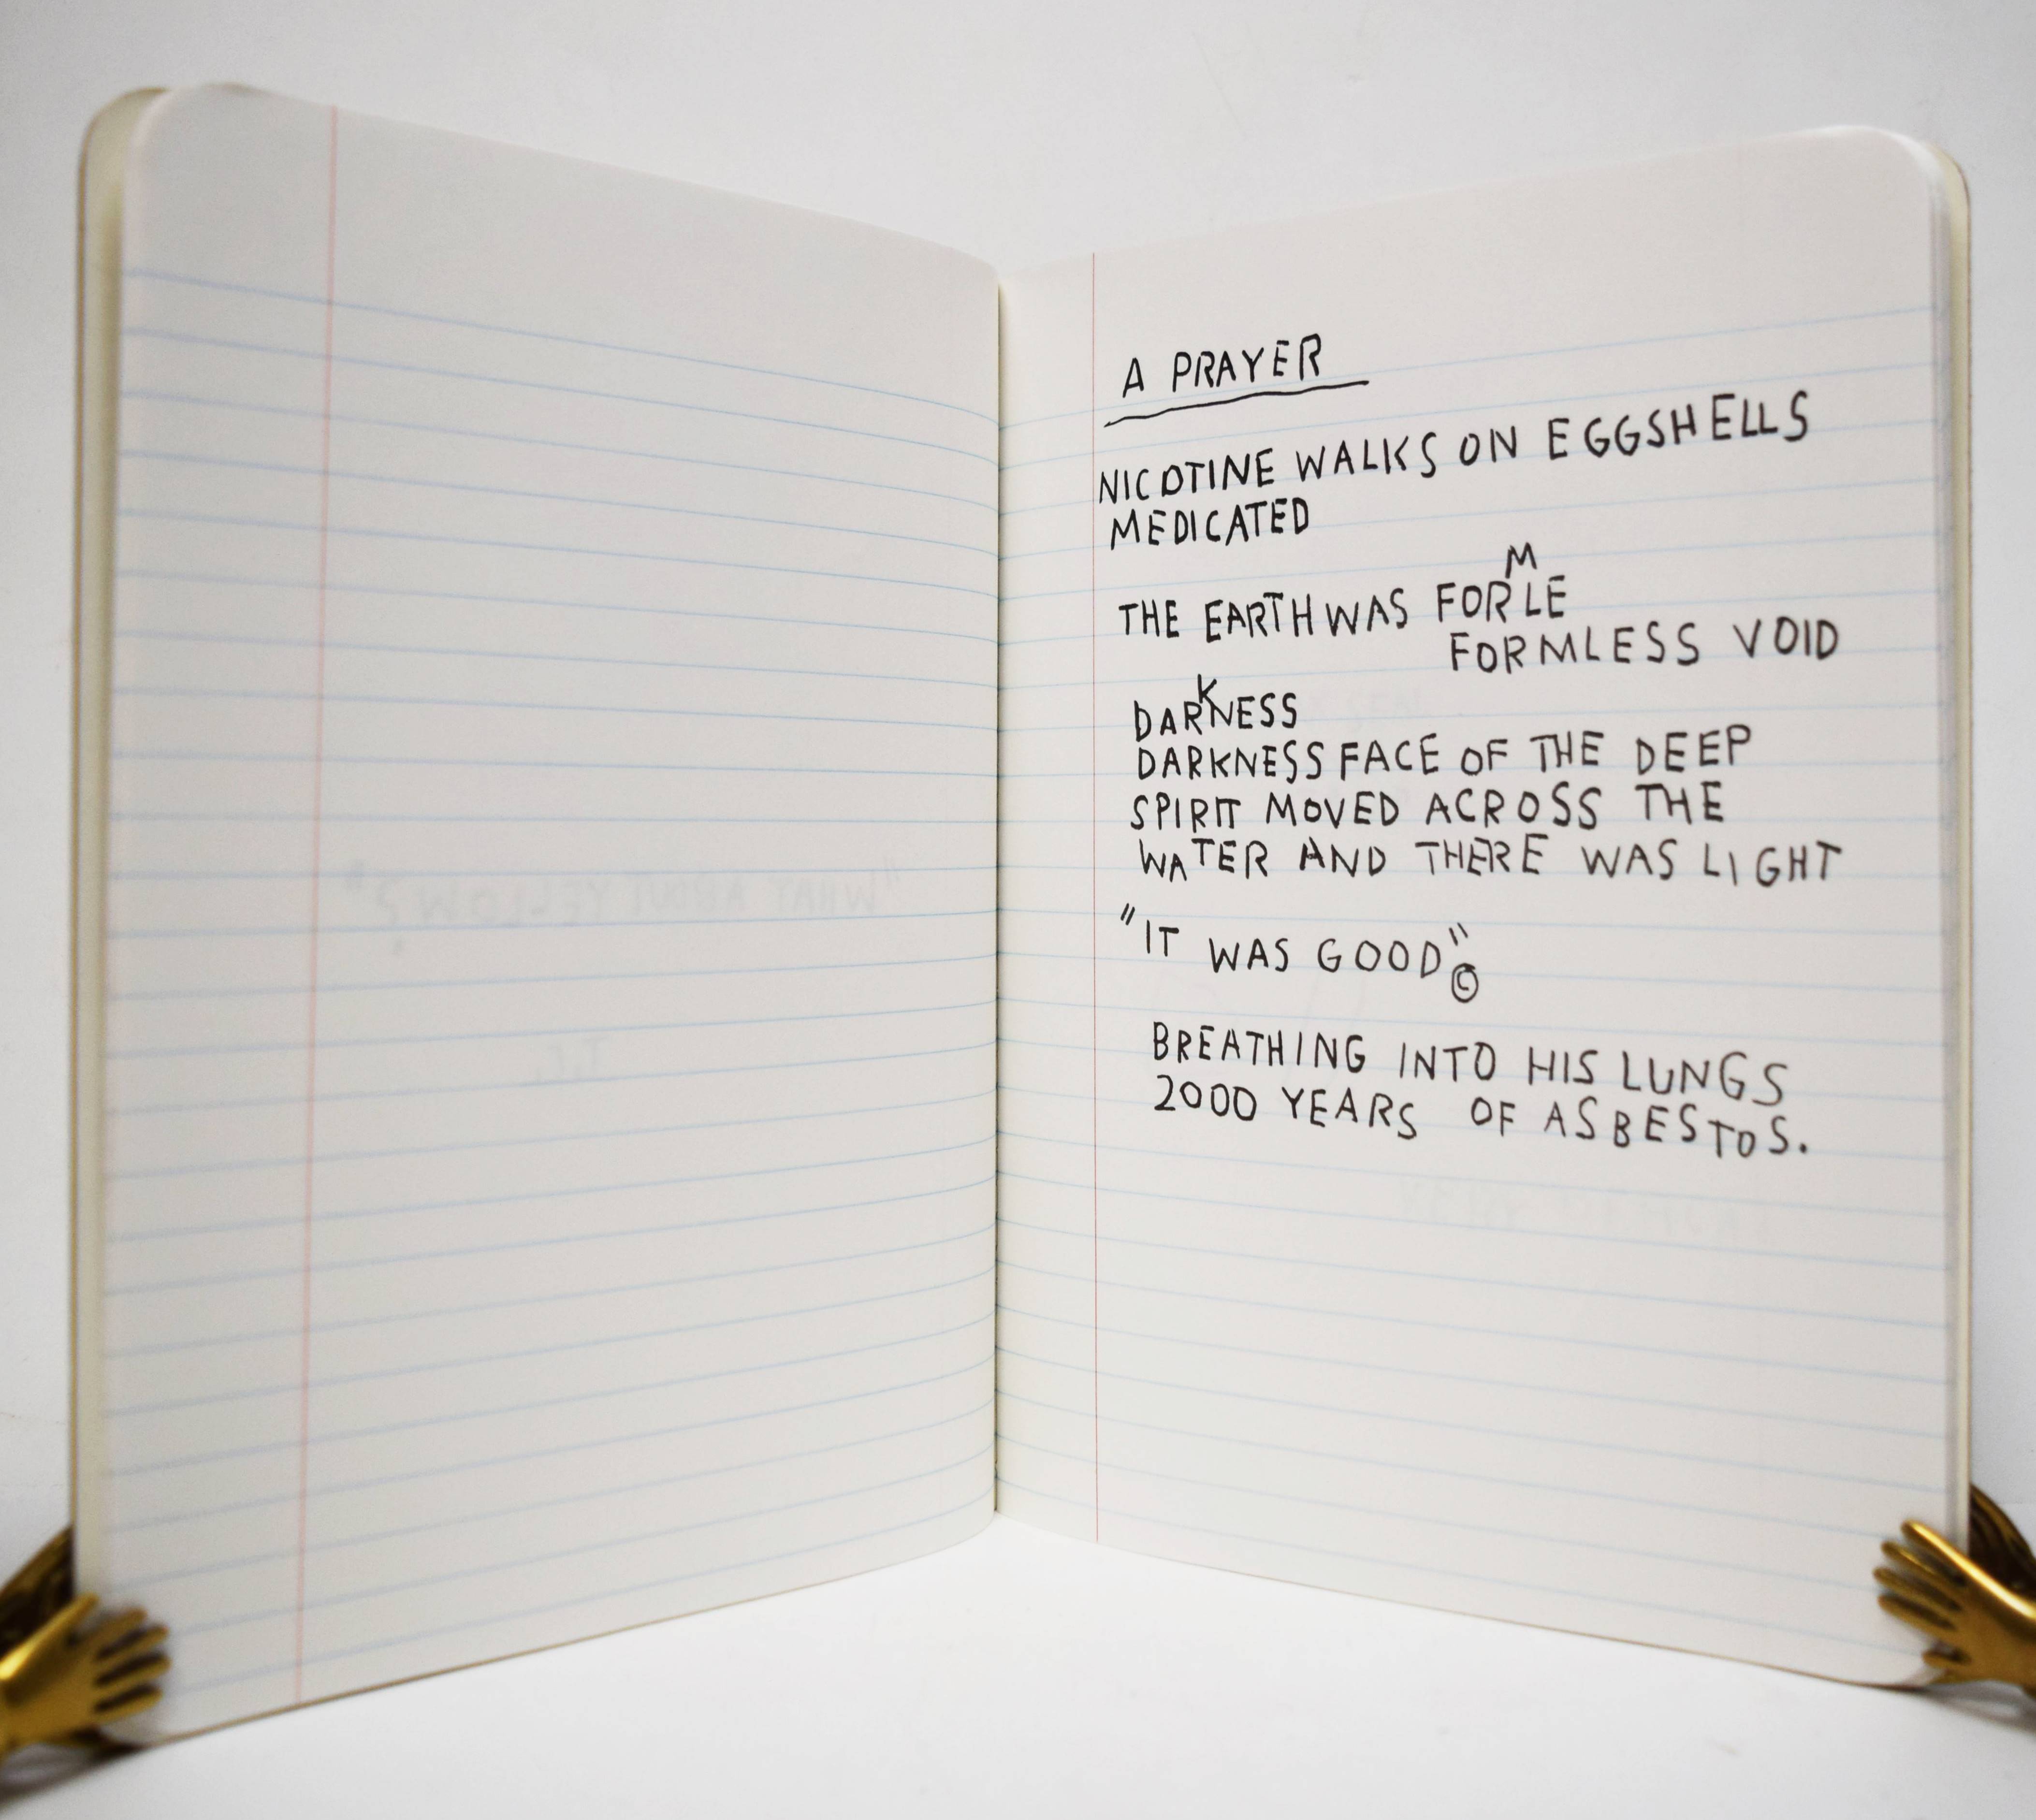 "WHAT ABOUT YELLOW?"
A PRAYER
NICOTINE WALKS ON EGGSHELLS
MEDICATED
M
THE EARTH WAS FORLE
FORMLESS VOID
K
DARNESS
DARKNESS FACE OF THE DEEP
SPIRIT MOVED ACROSS THE
WATER AND THERE WAS LIGHT
"IT WAS GOOD"©
BREATHING INTO HIS LUNGS
2000 YEARS OF ASBESTOS.